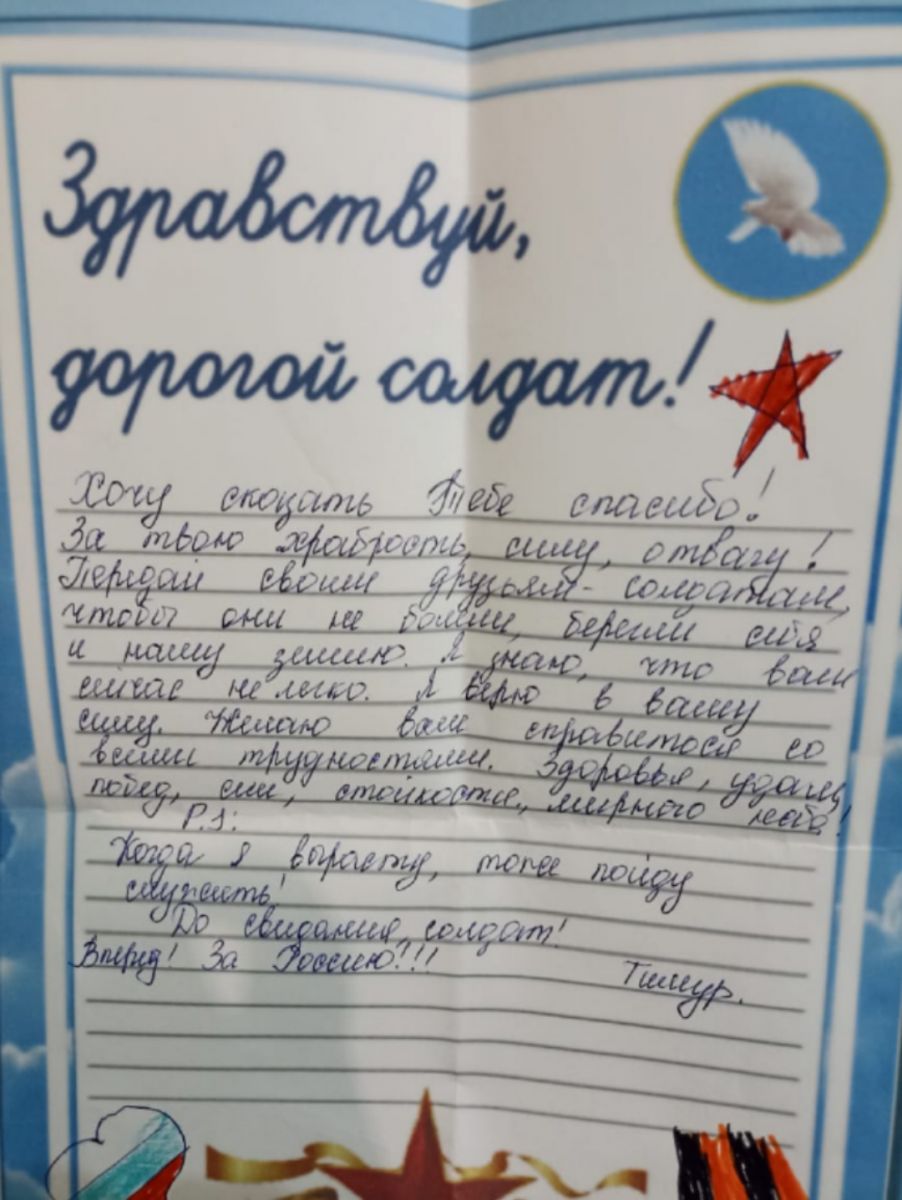 Здравствуй,
дорогой солдат!
Хочу скозать Тебе спасибо!
За твою храбрость, силу, отвагу!
Передай своим друзьям-солдатам,
чтобы они не болели, берегли себя
и нашу землю. Я знаю, что вам
сийчас не легко. Я верю в вашу
силу. Желаю вам справитося со
всеми трудностями. Здоровья, удачи,
побед, сил, стойкости, мирного неба!
P.S:
Когда я вырасту, тоже пойду
служить!
До свидания, солдат!
Вперед! За Россию!!!
Тимур.